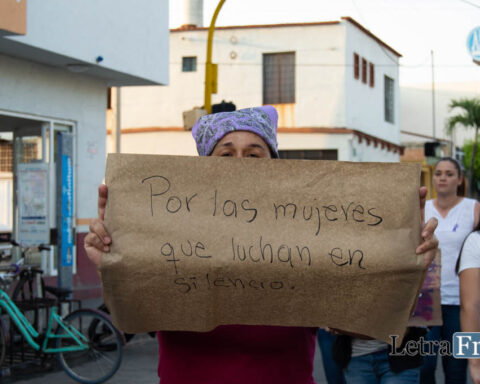 Por las mujeres
que luchan en
silencio.
Letra Fr